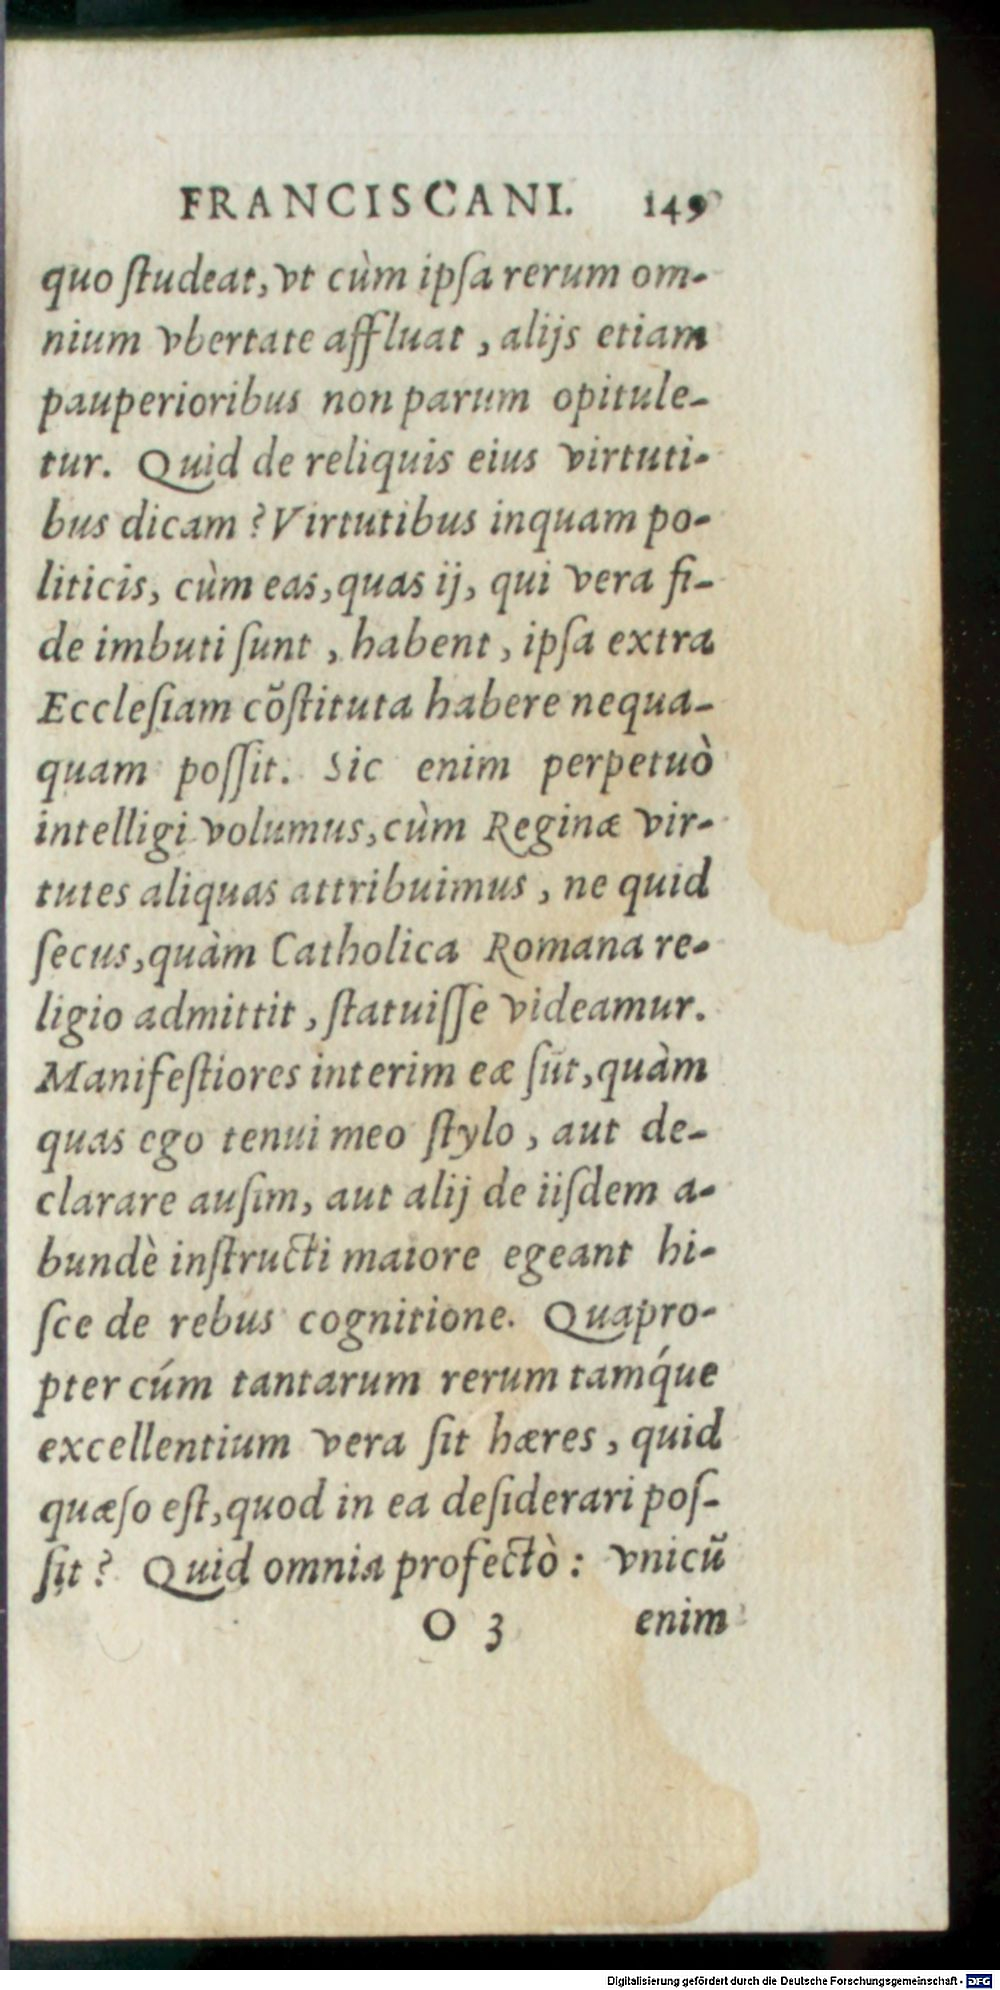 FRANCISCANI. 149
quo ſtudeat, vt cùm ipſa rerum om-
nium vbertate affluat, alijs etiam
pauperioribus non parum opitule-
tur. Quid de reliquis eius virtuti-
bus dicam? Virtutibus inquam po-
liticis, cùm eas, quas ij, qui vera fi-
de imbuti ſunt, habent, ipſa extra
Eccleſiam cõſtituta habere nequa-
quam poſſit. Sic enim perpetuò
intelligi volumus, cùm Reginæ vir-
tutes aliquas attribuimus, ne quid
ſecus, quàm Catholica Romana re-
ligio admittit, ſtatuiſſe videamur.
Manifeſtiores interim eæ sũt, quàm
quas ego tenui meo ſtylo, aut de-
clarare auſim, aut alij de iiſdem a-
bundè inſtructi maiore egeant hi-
ſce de rebus cognitione. Quapro-
pter cúm tantarum rerum tamq́ue
excellentium vera ſit hæres, quid
quæſo eſt, quod in ea deſiderari poſ-
ſit? Quid omnia profectò: vnicũ
O 3 enim
Digitalisierung gefördert durch die Deutsche Forschungsgemeinschaft - DFG